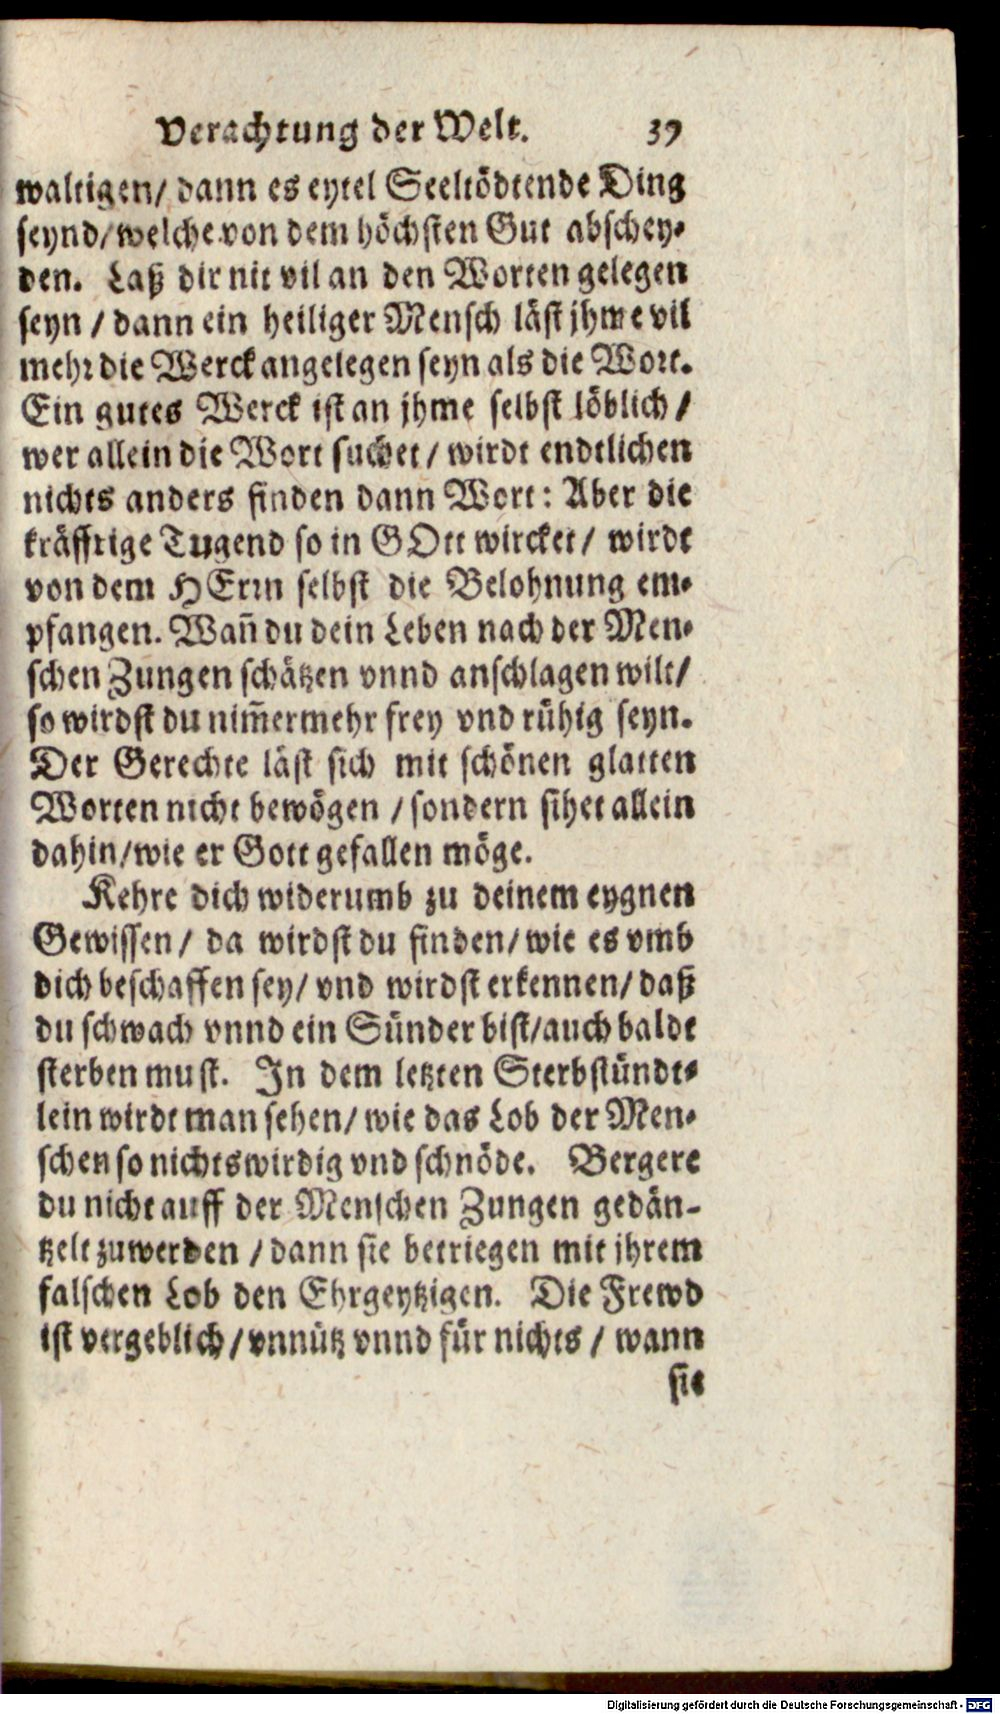 Verachtung der Welt. 39
waltigen/ dann es eytel Seeltödtende Ding
seynd/ welche von dem höchsten Gut abschey-
den. Laß dir nit vil an den Worten gelegen
seyn / dann ein heiliger Mensch läst jhme vil
mehr die Werck angelegen seyn als die Wort.
Ein gutes Werck ist an jhme selbst löblich /
wer allein die Wort suchet / wirdt endtlichen
nichts anders finden dann Wort: Aber die
kräfftige Tugend so in GOtt wircket / wirdt
von dem HErrn selbst die Belohnung em-
pfangen. Wañ du dein Leben nach der Men-
schen Zungen schätzen vnnd anschlagen wilt/
so wirdst du nim̃ermehr frey vnd rühig seyn.
Der Gerechte läst sich mit schönen glatten
Worten nicht bewögen / sondern sihet allein
dahin/ wie er Gott gefallen möge.
Kehre dich widerumb zu deinem eygnen
Gewissen/ da wirdst du finden/ wie es vmb
dich beschaffen sey/ vnd wirdst erkennen/ daß
du schwach vnnd ein Sünder bist/ auch baldt
sterben must. In dem letzten Sterbstündt-
lein wirdt man sehen/ wie das Lob der Men-
schen so nichtswirdig vnd schnöde. Bergere
du nicht auff der Menschen Zungen gedän-
tzelt zuwerden / dann sie betriegen mit jhrem
falschen Lob den Ehrgeytzigen. Die Frewd
ist vergeblich/ vnnütz vnnd für nichts / wann
sie
Digitalisierung gefördert durch die Deutsche Forschungsgemeinschaft - DFG